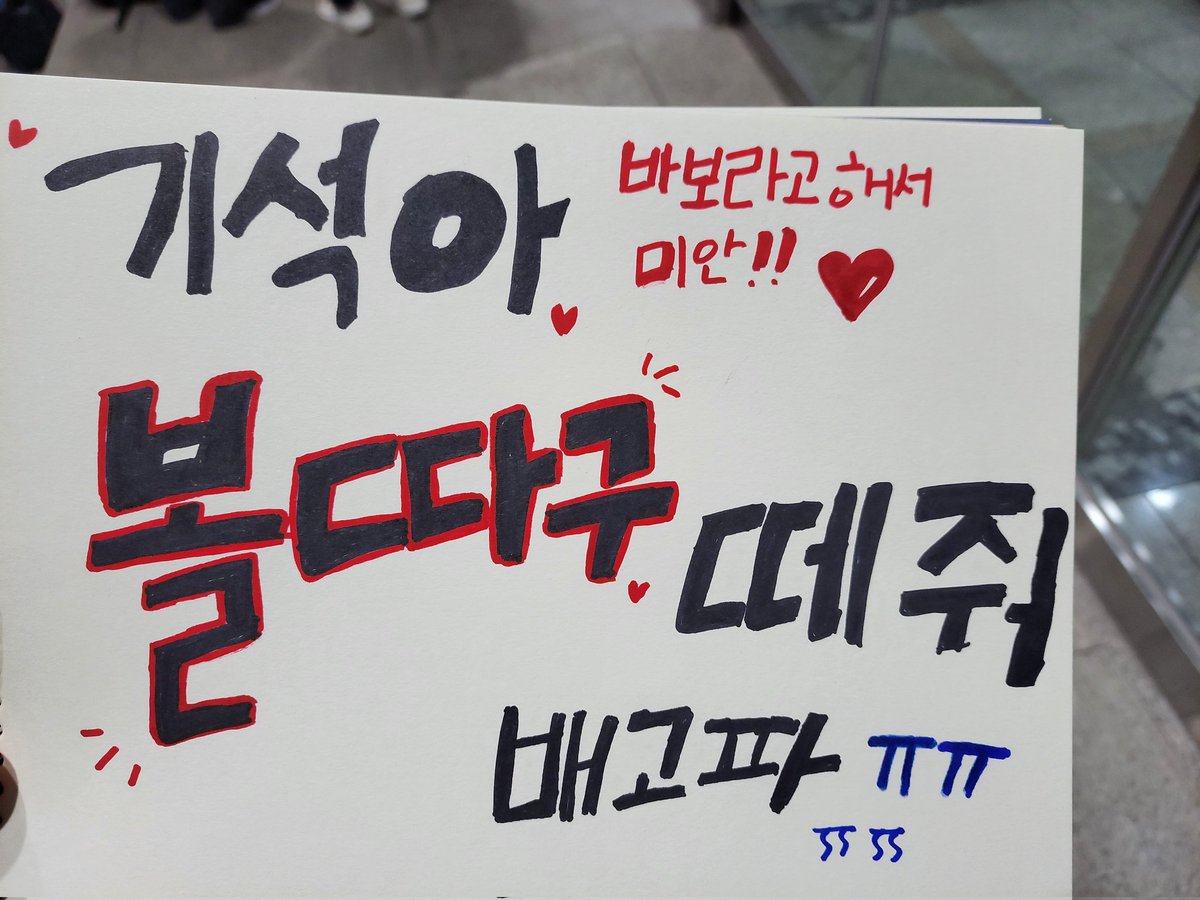 기석아
바보라고해서
미안!!
볼따구
떼줘
배고파 ㅠㅠ